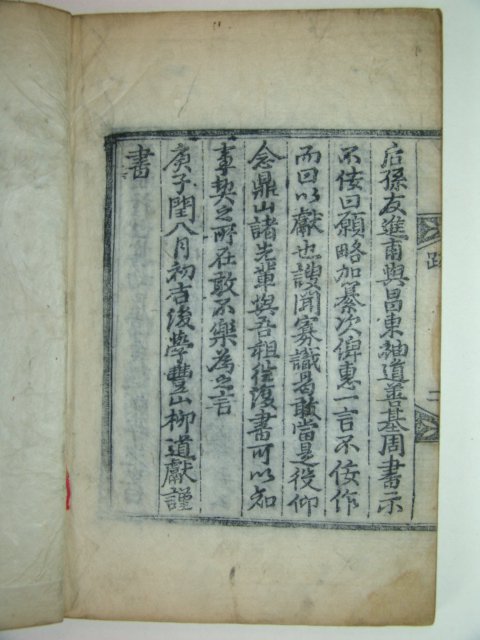 后孫友進甫與昌東袖道善基周書示
不佞曰願略加纂次俾惠一言不佞作
而曰以獻也謏聞寡識曷敢當是役仰
念鼎山諸先輩與吾祖徃復書可以知
事契之所在敢不樂為之言
庚子閏八月初吉後學豊山柳道獻謹
書
跋
二